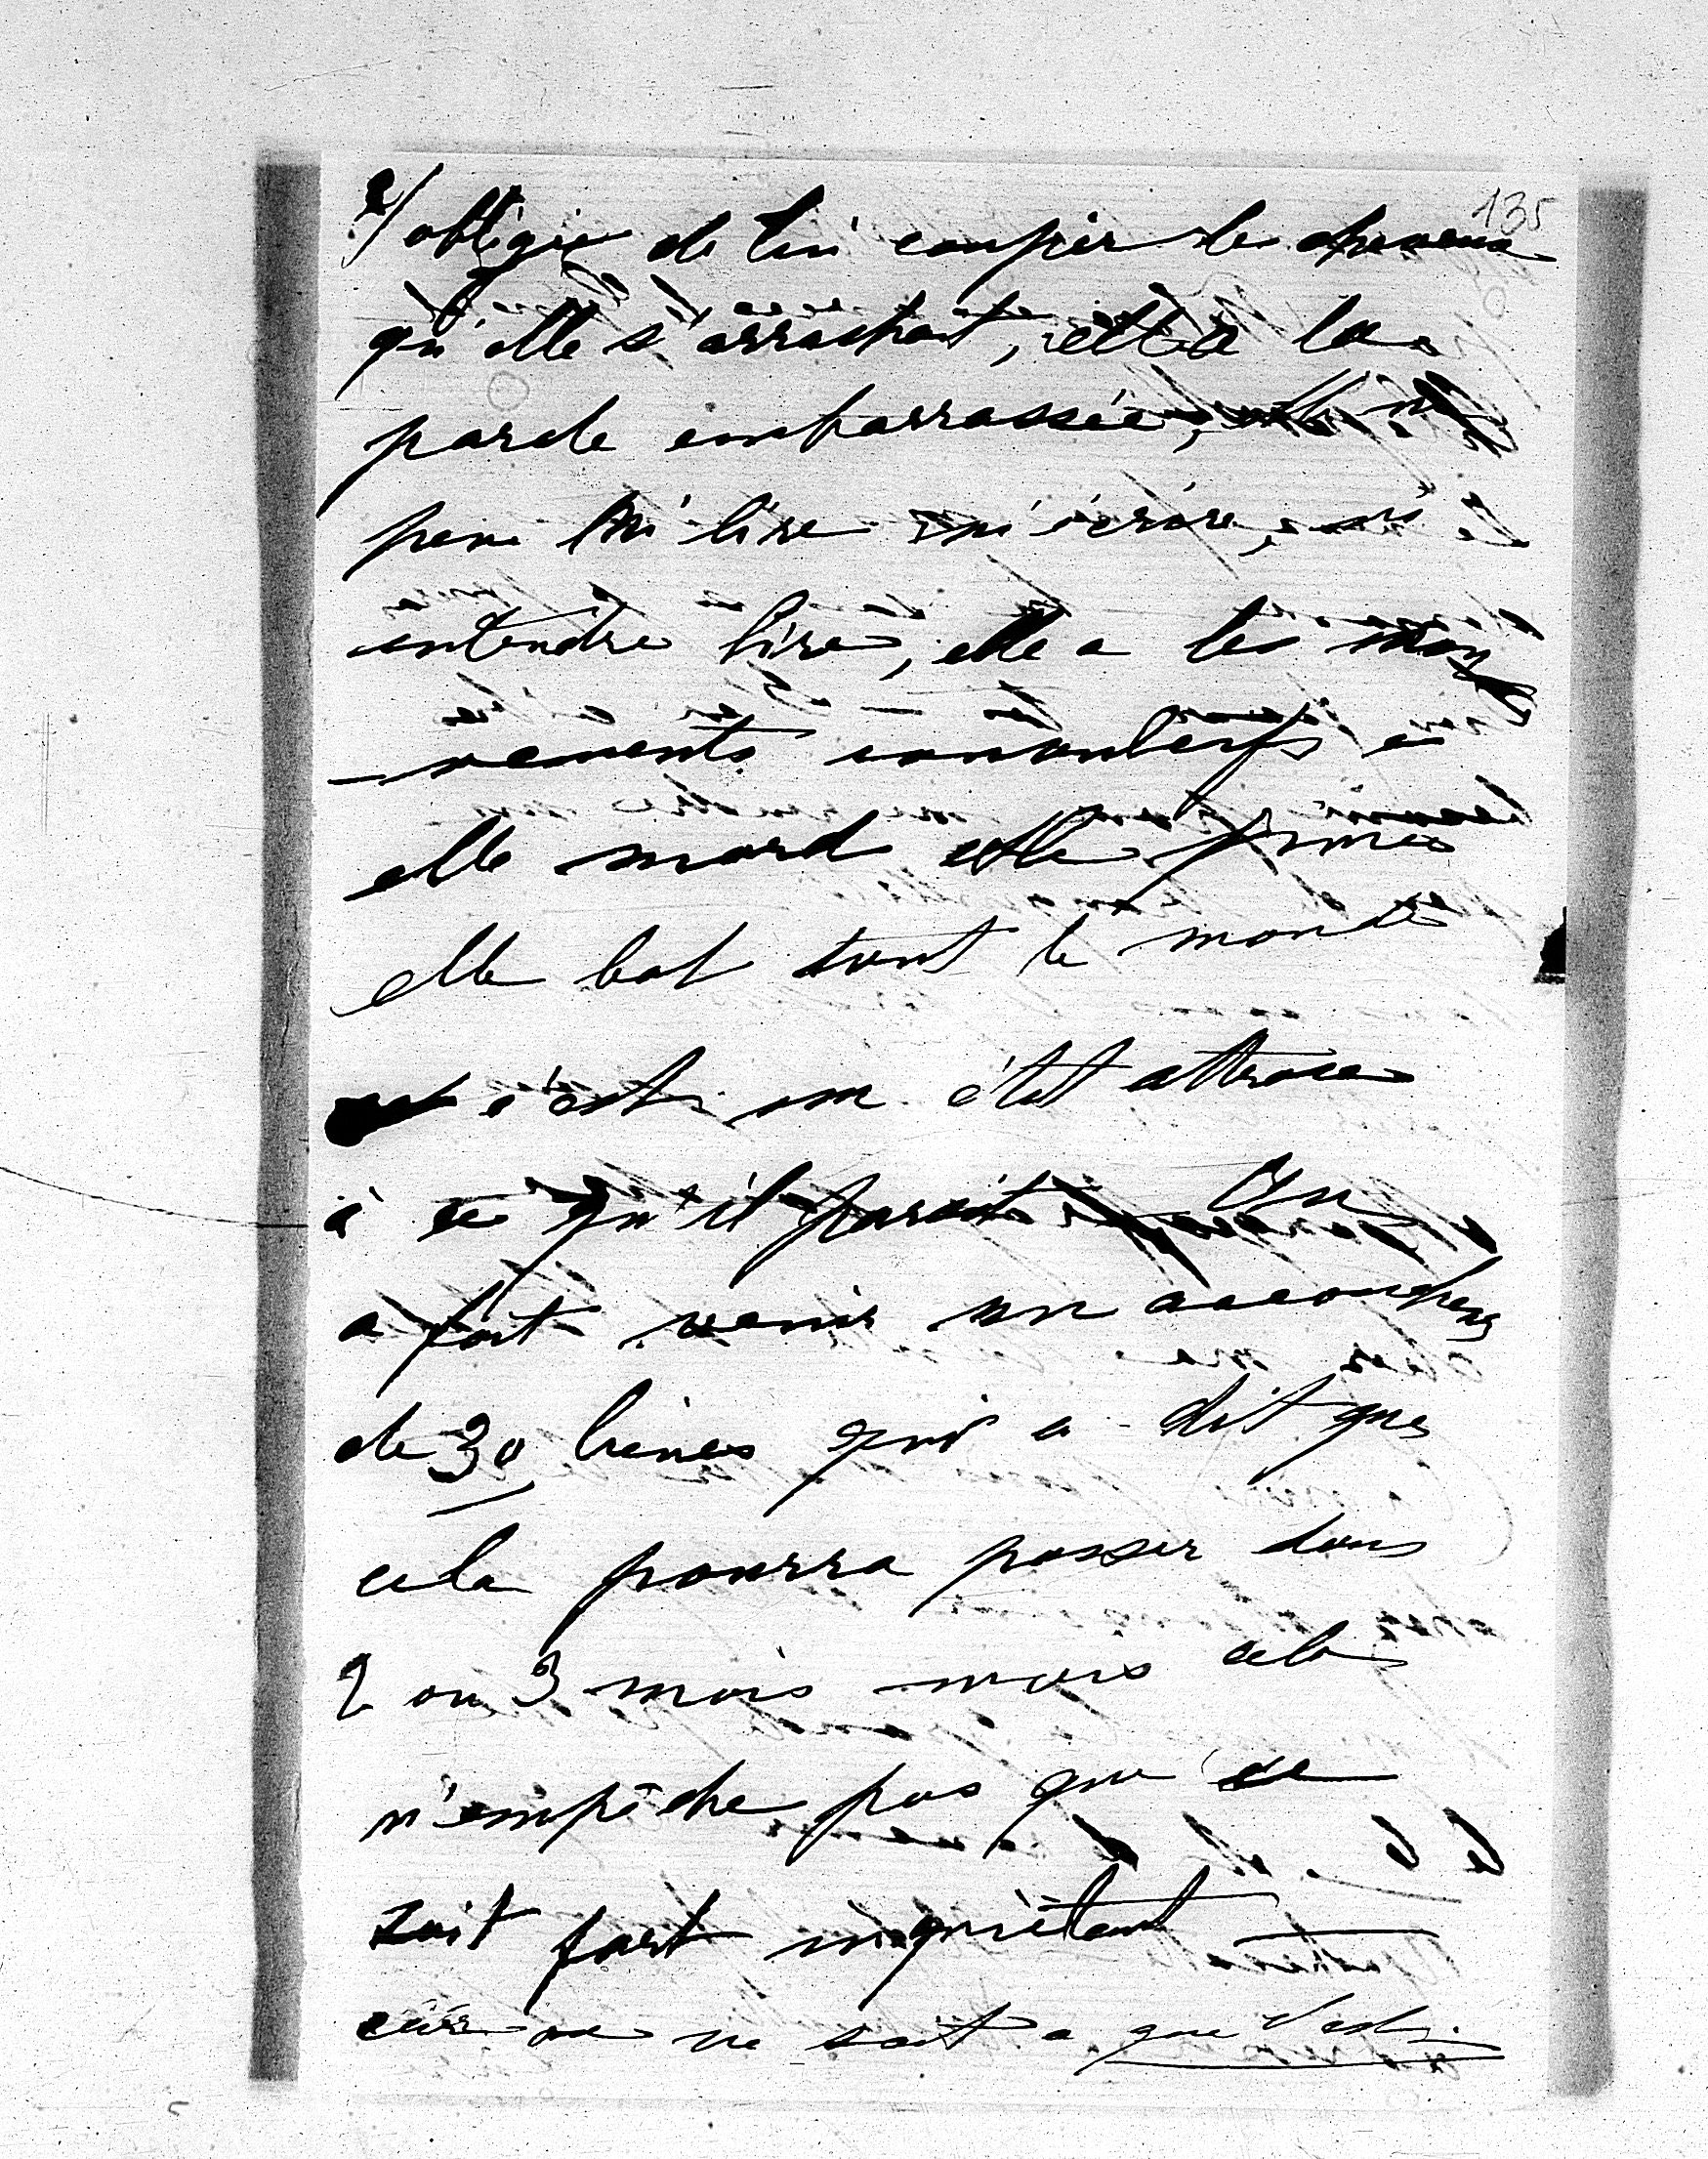 135
2/ obligé de lui couper les cheveux
qu'elle s'arrachait, elle a la
parole embarrassée,
peu ni lire ni écrire, ni
entendre lire, elle a les mou
-vements convulsifs
elle mord elle pince
elle bat tout le monde
c'est un état atroce
à ce qu'il parait On
a fait venir un accoucheur
de 30 lieues qui a dit que
cela pourra passer dans
2 ou 3 mois mais cela
n'empêche pas que ce
soit fort inquiétant
car on ne sait que c'est